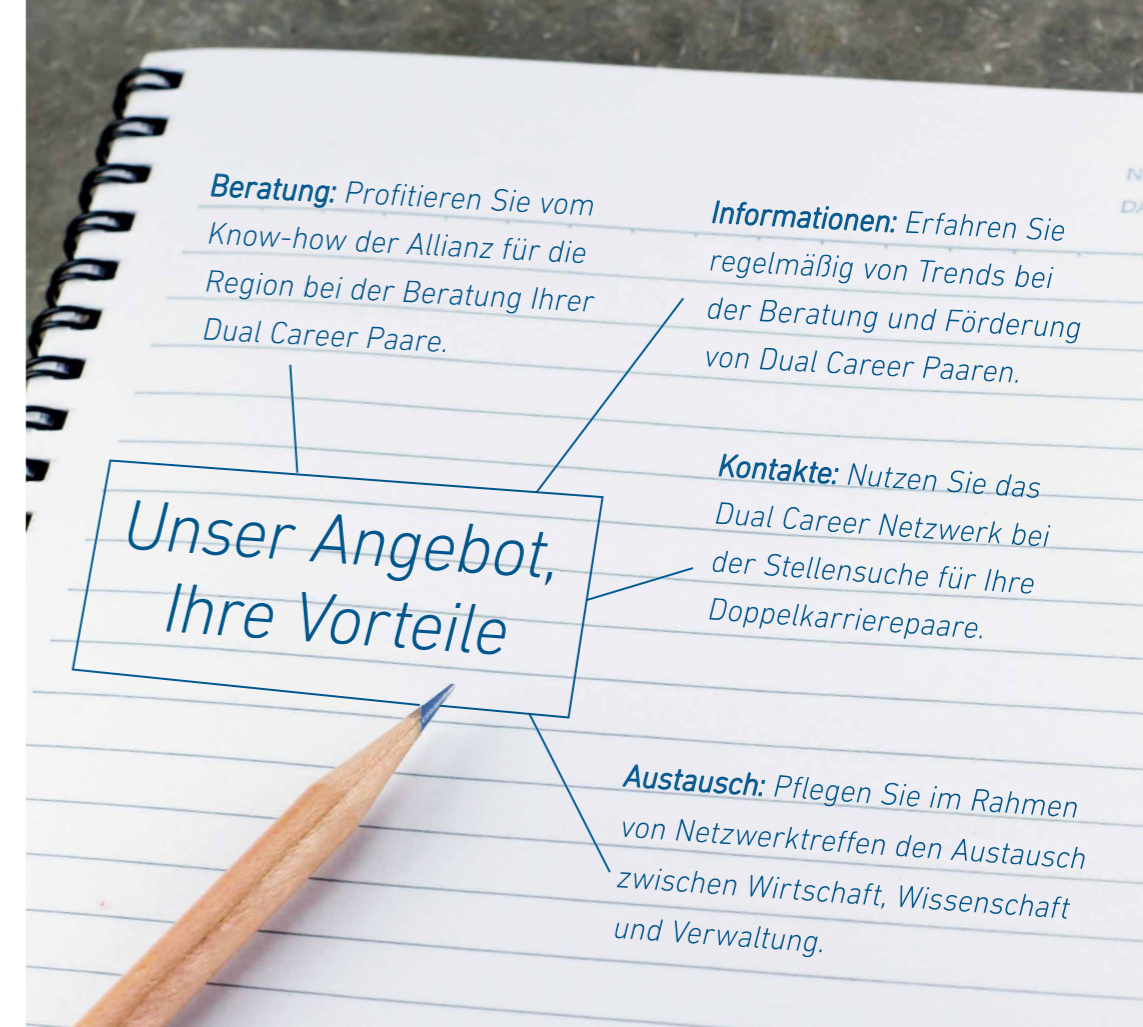 Beratung: Profitieren Sie vom
Know-how der Allianz für die
Region bei der Beratung Ihrer
Dual Career Paare.
Informationen: Erfahren Sie
regelmäßig von Trends bei
der Beratung und Förderung
von Dual Career Paaren.
Unser Angebot,
Ihre Vorteile
Kontakte: Nutzen Sie das
Dual Career Netzwerk bei
der Stellensuche für Ihre
Doppelkarrierepaare.
Austausch: Pflegen Sie im Rahmen
von Netzwerktreffen den Austausch
zwischen Wirtschaft, Wissenschaft
und Verwaltung.